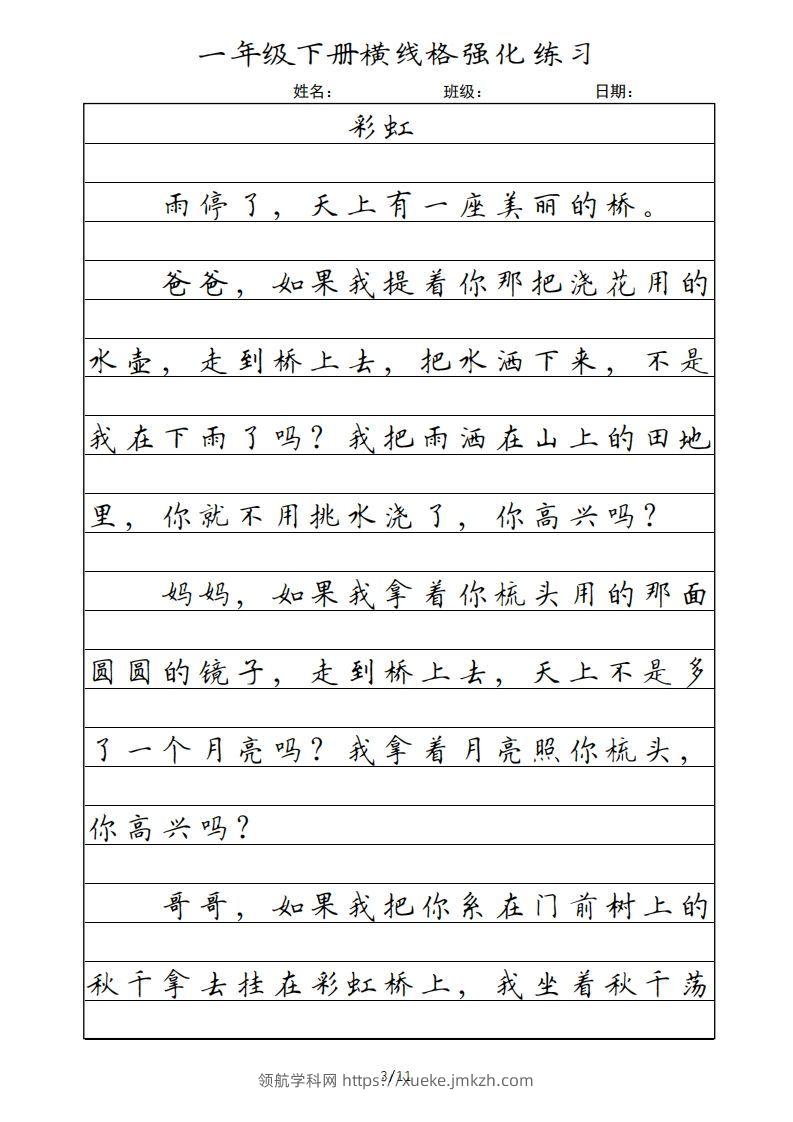 一年级下册横线格强化练习
姓名： 班级： 日期：
彩虹
雨停了，天上有一座美丽的桥。
爸爸，如果我提着你那把浇花用的
水壶，走到桥上去，把水洒下来，不是
我在下雨了吗？我把雨洒在山上的田地
里，你就不用挑水浇了，你高兴吗？
妈妈，如果我拿着你梳头用的那面
圆圆的镜子，走到桥上去，天上不是多
了一个月亮吗？我拿着月亮照你梳头，
你高兴吗？
哥哥，如果我把你系在门前树上的
秋千拿去挂在彩虹桥上，我坐着秋千荡
3/11
领航学科网 https://xueke.jmkzh.com